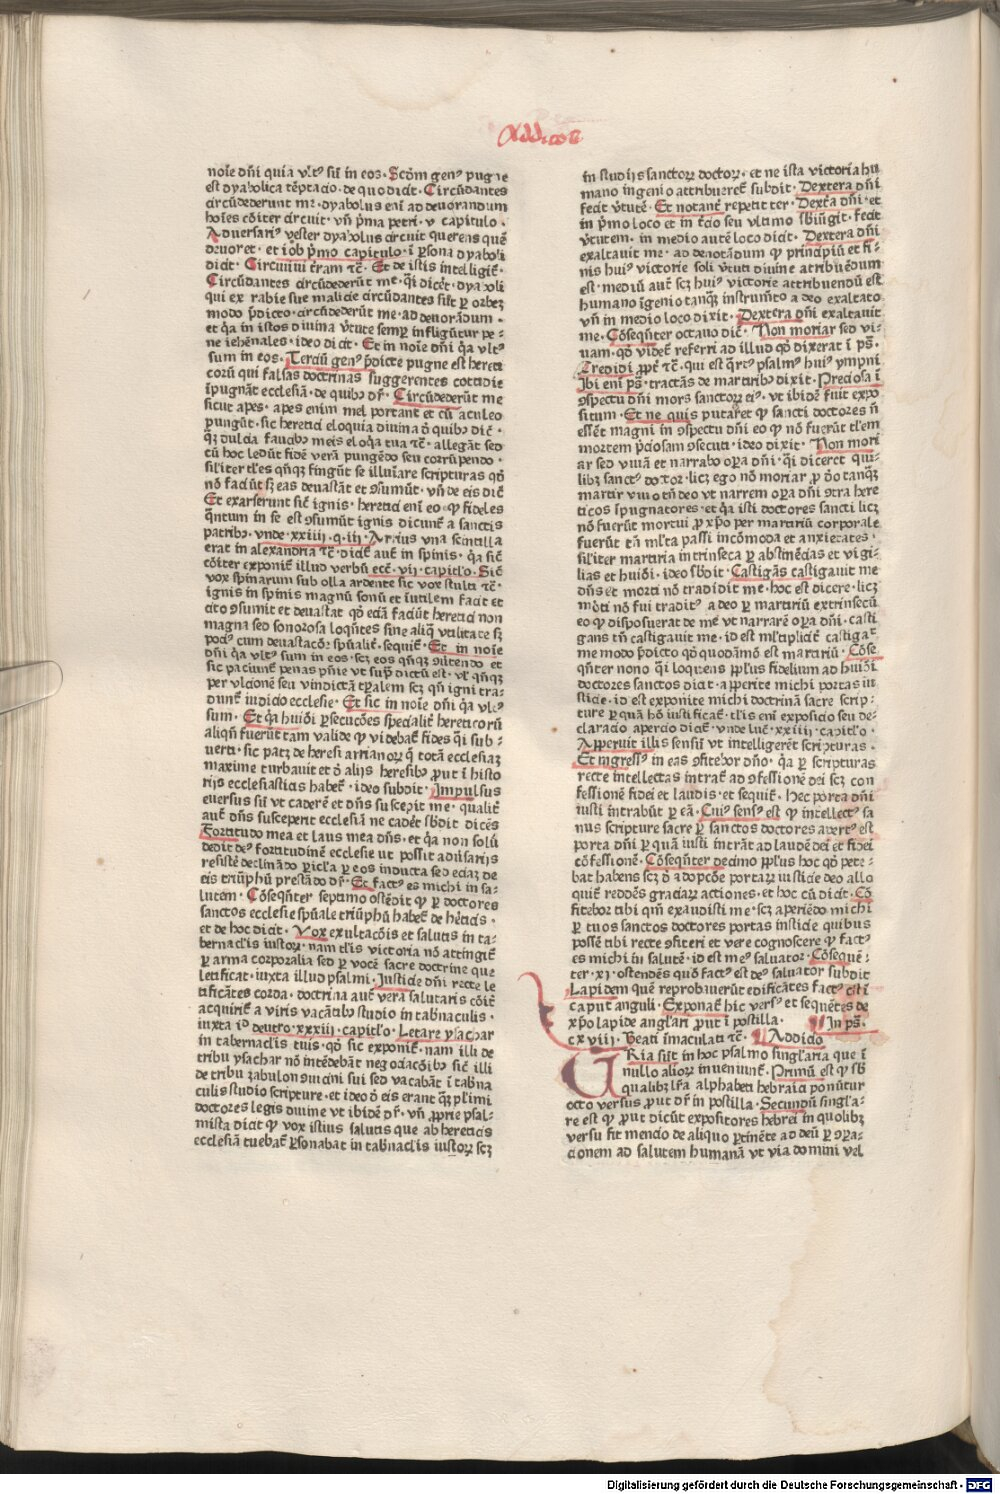 Addicōe
noīe dñi quia vlt⁹ sũ in eos. Scḋm gen⁹ pugne
est dyabolica tēptacio. de quo dicit. Circũdantes
circũdederunt me. dyabolus eni ad deuorandum
hoīes cōiter circuit. vñ pͥma petri. v capitulo.
Aduersari⁹ vester dyabolus circuit querens quē
deuoret. et iob pͥmo capitulo. ī psona dyaboli
dicit. Circuiui trāam ⁊c̄. Et de istis intelligit̄.
Circũdantes circũdederũt me. qͥ dicēt. dyaboli
qui ex rabie sue malicie circũdantes sũt p orbeʒ
modo pͥdicto. circũdederũt me. ad deuorādum.
et qͥa in istos diuina vͥtute semp infligũtur pe-
ne iehēnales. ideo dicit. Et in noīe dñi qͥa vlt⁹
sum in eos. Terciũ gen⁹ pͥdicte pugne est hereti
corũ qui falsas doctrinas suggerentes cottidie
īpugnāt ecclesiā. de quibꝰ dr̄. Circũdederũt me
sicut apes. apes enim mel portant et cũ aculeo
pungũt. sic heretici eloquia diuina ō quibꝰ dic̄.
qͣʒ dulcia faucibꝰ meis eloqͥa tua ⁊c̄. allegāt sed
cũ hoc ledũt fidē verā pungēdo seu corrũpendo.
siliter tles qñqʒ fingũt se illuīare scripturas qḋ
nō faciũt sʒ eas deuastāt et ꝯsumũt. vñ de eis dic̄
Et exarserunt sic̄ ignis. heretici eni eo qͣ fideles
qͣntum in se est ꝯsumũt ignis dicunt̄ a sanctis
patribꝰ. vnde .xxiiii. q. iii. Arrius vna scintilla
erat in alexandria ⁊c̄. dicit̄ aut̄ in spinis. qͥa sic̄
cōiter exponit̄ illud verbũ ecc̄. vij. capitlo. Sic̄
vox spinarum sub olla ardente sic vox stulti ⁊c̄.
ignis in spinis magnũ sonũ et īutilem facit et
cito ꝯsumit et deuastat qḋ eciā faciũt heretici non
magna sed sonorosa loqñtes sine aliqͣ vtilitate sʒ
poci⁹ cum deuastacōe spũalit̄. sequit̄. Et in noīe
dñi qͥa vlt⁹ sum in eos. scʒ eos qñqʒ ꝯuertendo et
sic paciunt̄ penas pnīe vt supͣ dictũ est. vl̄ qñqʒ
per vlcionē seu vindictā tp̄alem scʒ qñ igni tra-
dunt̄ iudicio ecclesie. Et sic in noīe dñi qͥa vlt⁹
sum. Et qͥa huiōi psecuciões specialit̄ hereticorũ
aliqñ fuerũt tam valide qͣ videbat̄ fides qͣi sub-
uerti. sic patʒ de heresi arrianorʒ qͣ totā ecclesiaʒ
maxime turbauit et ō alijs heresibꝰ put ī histo
rijs ecclesiasticis habet̄. ideo subdit. Impulsus
euersus sũ vt caderē et dñs suscepit me. qualit̄
aut̄ dñs susceperit ecclesiā ne cadēt sb̄dit dicēs
Fortitudo mea et laus mea dñs. et qͥa non solũ
dedit de⁹ fortitudinē ecclesie ut possit aduersarijs
resistē declināndo picla p eos inducta sed eciaʒ de
eis triũphũ prestādo dr̄. Et fact⁹ es michi in sa-
lutem. Cōseqñter septimo ostēdit qͣ p doctores
sanctos ecclesie spũale triũphũ habet̄ de heͤticis.
et de hoc dicit. Vox exultacōis et salutis in ta-
bernaclis iustorʒ. nam tlis victoria nō attingit̄
p arma corporalia sed p vocē sacre doctrine que
letificat. iuxta illud psalmi. Justicie dñi recte le
tificātes corda. doctrina aut̄ vera salutaris cōit̄
acquirit̄ a viris vacātibꝰ studio in tab̄naculis.
iuxta iḋ deutro. xxxiij. capitlo. Letare ysachar
in tabernaclis tuis. qḋ sic exponit̄. nam illi de
tribu ysachar nō intēdebāt negociacōibꝰ sic̄ illi
de tribu zabulon ꝯuicini sui sed vacabāt ī tab̄na
culis studio scripture. et ideo ō eis erant qͣʒ plimi
doctores legis diuine vt ibidē dr̄. vñ pprie psal-
mista dicit qͣ vox istius salutis que ab hereticis
ecclesiā tuebat̄ psonabat in tab̄naclis iustorʒ scʒ
in studijs sanctorʒ doctorʒ. et ne ista victoria hu
mano ingenio attribueret̄ subdit. Dextera dñi
fecit vͥtutē. Et notant̄ repetit ter. Dextͣa dñi. et
in pͥmo loco et in t̄cio seu vltimo sb̄iũgit. fecit
vͥtutem. in medio autē loco dicit. Dextera dñi
exaltauit me. ad denotādum qͣ principiũ et fi-
nis hui⁹ victorie soli vͥtuti diuine atribuēdum
est. mediũ aut̄ scʒ hui⁹ victorie attribuendũ est
humano īgenio tanqͣʒ instrumēto a deo exaltato
vñ in medio loco dixit. Dextera dñi exaltauit
me. Cōseqñter octauo dic̄. Non moriar sed vi-
uam. qḋ videt̄ referri ad illud qḋ dixerat ī ps̄.
Credidi ppt̄ ⁊c̄. qui est qͣrt⁹ psalm⁹ hui⁹ ympni
Ibi eni ps̄. tractās de martiribꝰ dixit. Preciosa ī
ꝯspectu dñi mors sanctorʒ ei⁹. vt ibidē fuit expo
situm. Et ne quis putaret qͣ sancti doctores ñ
essēt magni in ꝯspectu dñi eo qͣ nō fuerũt tlem
mortem pͥciosam ꝯsecuti. ideo dixit. Non mori
ar sed viuā et narrabo opa dñi. qͣi diceret qui-
libʒ sanct⁹ doctor. licʒ ego nō moriar p ōo tanqͣʒ
martir viuo tñ deo vt narrem opa dñi ꝯtra here
ticos īpugnatores. et qͥa isti doctores sancti licʒ
nō fuerũt mortui p xpo per martiriũ corporale
fuerũt tñ mlta passi incōmoda et anxietates.
siliter martiria intrinseca p abstinēcias et vigi-
lias et huiōi. ideo sb̄dit. Castigās castigauit me
dñs et morti nō tradidit me. hoc est dicere. licʒ
morti nō fui tradit⁹ a deo p martiriũ extrinsecũ
eo qͣ disposuerat de me vt narrarē opa dñi. casti
gans tñ castigauit me. id est mltiplicit̄ castigat
me modo pͥdicto qḋ quodāmō est martiriũ. Cōse
qñter nono qͣi loquens pplus fidelium ad huiōi
doctores sanctos dicit. apperite michi portas iu
sticie. id est exponite michi doctrinā sacre scrip-
ture p quā hō iustificat̄. tlis eni exposicio seu de-
claracio apercio dicit̄. vnde luc̄. xxiiii. capitlo.
Apperuit illis sensũ vt intelligerēt scripturas.
Et ingress⁹ in eas ꝯfitebor dño. qͥa p scripturas
recte intellectas intrat̄ ad ꝯfessionē dei scʒ con
fessionē fidei et laudis. et sequit̄. hec porta dñi
iusti intrabũt p eā. Cui⁹ sens⁹ est qͣ intellect⁹ sa
nus scripture sacre p sanctos doctores apert⁹ est
porta dñi p quā iusti intrāt ad laudē dei et fidei
cōfessionē. Cōseqñter decimo pplus hoc qḋ pete-
bat habens scʒ ō adopcōe portarʒ iusticie deo allo
quit̄ reddēs graciarʒ actiones. et hoc cũ dicit. Cō
fitebor tibi qm̄ exaudisti me. scʒ aperiēdo michi
p tuos sanctos doctores portas iusticie quibus
possē tibi recte ꝯfiteri et vere cognoscere qͣ fact⁹
es michi in salutē. id est me⁹ saluator. Cōsequē-
ter. xj. ostendēs quō fact⁹ est de⁹ saluator subdit
Lapidem quē reprobauerũt edificātes fact⁹ est ī
caput anguli. Exponat̄ hic vers⁹ et sequētes de
xpo lapide anglari put ī postilla. ¶ In ps̄.
cxviij. Beati īmaculati ⁊c̄. ¶ Addicio
TRia sũt in hoc psalmo singlaria que ī
nullo aliorʒ inueniunt̄. Primũ est qͣ sb̄
qualibʒ lr̄a alphabeti hebraici ponũtur
octo versus put dr̄ in postilla. Secundũ singla-
re est qͣ put dicũt expositores hebrei in quolibʒ
versu fit mencio de aliquo ptinēte ad deũ p opa-
cionem ad salutem humanā vt via domini vel
Digitalisierung gefördert durch die Deutsche Forschungsgemeinschaft · DFG